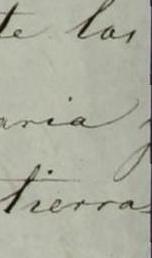 te los
aria y
tierras